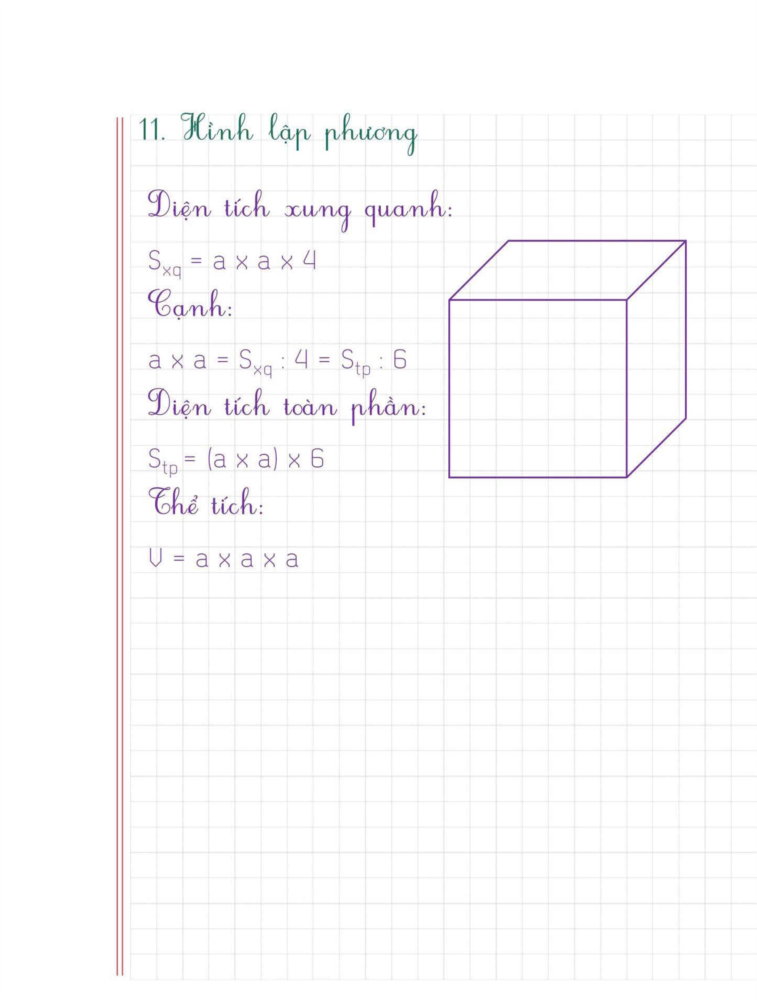 11. Hình lập phương
Diện tích xung quanh:
Sxq = a x a x 4
Cạnh:
a x a = Sxq : 4 = Stp : 6
Diện tích toàn phần:
Stp = (a x a) x 6
Thể tích:
V = a x a x a